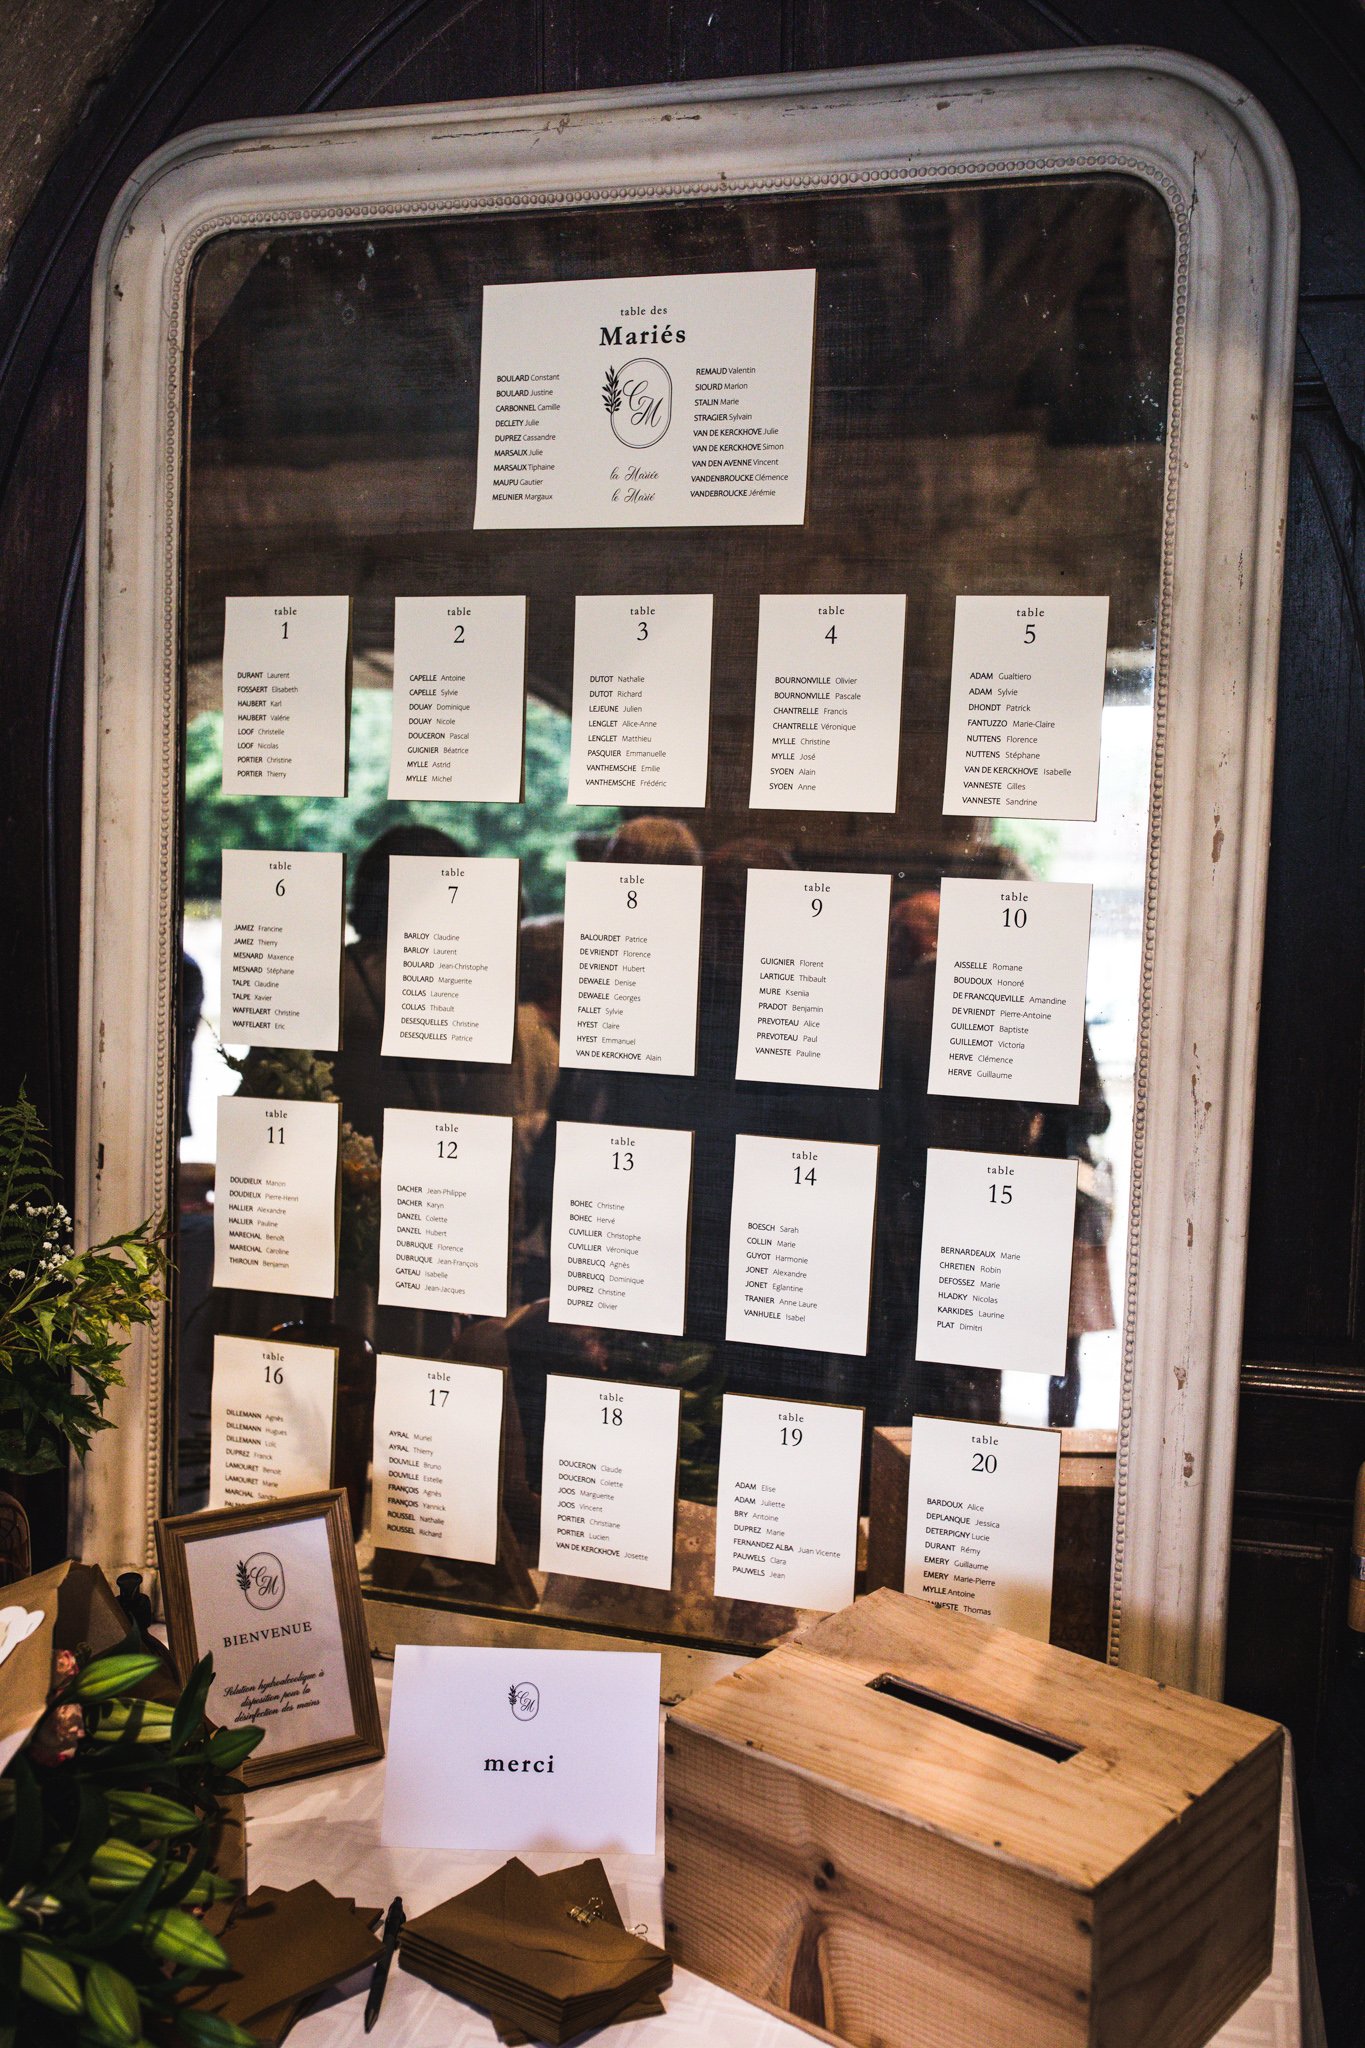 table des
Mariés
BOULARD Constant
BOULARD Justine
CARBONNEL Camille
DECLETY Julie
DUPREZ Cassandre
MARSAUX Julie
MARSAUX Tiphaine
MAUPU Gautier
MEUNIER Margaux
CM
la Mariée
le Marié
REMAUD Valentin
SIOURD Marion
STALIN Marie
STRAGIER Sylvain
VAN DE KERCKHOVE Julie
VAN DE KERCKHOVE Simon
VAN DEN AVENNE Vincent
VANDENBROUCKE Clémence
VANDEBROUCKE Jérémie
table
1
DURANT Laurent
FOSSAERT Elisabeth
HAUBERT Karl
HAUBERT Valérie
LOOF Christelle
LOOF Nicolas
PORTIER Christine
PORTIER Thierry
table
2
CAPELLE Antoine
CAPELLE Sylvie
DOUAY Dominique
DOUAY Nicole
DOUCERON Pascal
GUIGNIER Béatrice
MYLLE Astrid
MYLLE Michel
table
3
DUTOT Nathalie
DUTOT Richard
LEJEUNE Julien
LENGLET Alice-Anne
LENGLET Matthieu
PASQUIER Emmanuelle
VANTHEMSCHE Emilie
VANTHEMSCHE Frédéric
table
4
BOURNONVILLE Olivier
BOURNONVILLE Pascale
CHANTRELLE Francis
CHANTRELLE Véronique
MYLLE Christine
MYLLE José
SYOEN Alain
SYOEN Anne
table
5
ADAM Gualtiero
ADAM Sylvie
DHONDT Patrick
FANTUZZO Marie-Claire
NUTTENS Florence
NUTTENS Stéphane
VAN DE KERCKHOVE Isabelle
VANNESTE Gilles
VANNESTE Sandrine
table
6
JAMEZ Francine
JAMEZ Thierry
MESNARD Maxence
MESNARD Stéphane
TALPE Claudine
TALPE Xavier
WAFFELAERT Christine
WAFFELAERT Eric
table
7
BARLOY Claudine
BARLOY Laurent
BOULARD Jean-Christophe
BOULARD Marguerite
COLLAS Laurence
COLLAS Thibault
DESESQUELLES Christine
DESESQUELLES Patrice
table
8
BALOURDET Patrice
DE VRIENDT Florence
DE VRIENDT Hubert
DEWAELE Denise
DEWAELE Georges
FALLET Sylvie
HYEST Claire
HYEST Emmanuel
VAN DE KERCKHOVE Alain
table
9
GUIGNIER Florent
LARTIGUE Thibault
MURE Kseniia
PRADOT Benjamin
PREVOTEAU Alice
PREVOTEAU Paul
VANNESTE Pauline
table
10
AISSELLE Romane
BOUDOUX Honoré
DE FRANCQUEVILLE Amandine
DE VRIENDT Pierre-Antoine
GUILLEMOT Baptiste
GUILLEMOT Victoria
HERVE Clémence
HERVE Guillaume
table
11
DOUDIEUX Manon
DOUDIEUX Pierre-Henri
HALLIER Alexandre
HALLIER Pauline
MARECHAL Benoît
MARECHAL Caroline
THIROUIN Benjamin
table
12
DACHER Jean-Philippe
DACHER Karyn
DANZEL Colette
DANZEL Hubert
DUBRUQUE Florence
DUBRUQUE Jean-François
GATEAU Isabelle
GATEAU Jean-Jacques
table
13
BOHEC Christine
BOHEC Hervé
CUVILLIER Christophe
CUVILLIER Véronique
DUBREUCQ Agnès
DUBREUCQ Dominique
DUPREZ Christine
DUPREZ Olivier
table
14
BOESCH Sarah
COLLIN Marie
GUYOT Harmonie
JONET Alexandre
JONET Eglantine
TRANIER Anne Laure
VANHUELE Isabel
table
15
BERNARDEAUX Marie
CHRETIEN Robin
DEFOSSEZ Marie
HLADKY Nicolas
KARKIDES Laurine
PLAT Dimitri
table
16
DILLEMANN Agnès
DILLEMANN Hugues
DILLEMANN Loïc
DUPREZ Franck
LAMOURET Benoit
LAMOURET Marie
MARCHAL
table
17
AYRAL Muriel
AYRAL Thierry
DOUVILLE Bruno
DOUVILLE Estelle
FRANÇOIS Agnès
FRANÇOIS Yannick
ROUSSEL Nathalie
ROUSSEL Richard
table
18
DOUCERON Claude
DOUCERON Colette
JOOS Marguerite
JOOS Vincent
PORTIER Christiane
PORTIER Lucien
VAN DE KERCKHOVE Josette
table
19
ADAM Elise
ADAM Juliette
BRY Antoine
DUPREZ Marie
FERNANDEZ ALBA Juan Vicente
PAUWELS Clara
PAUWELS Jean
table
20
BARDOUX Alice
DEPLANQUE Jessica
DETERPIGNY Lucie
DURANT Rémy
EMERY Guillaume
EMERY Marie-Pierre
MYLLE Antoine
Thomas
CM
BIENVENUE
Solution hydroalcoolique à
disposition pour la
désinfection des mains
CM
merci